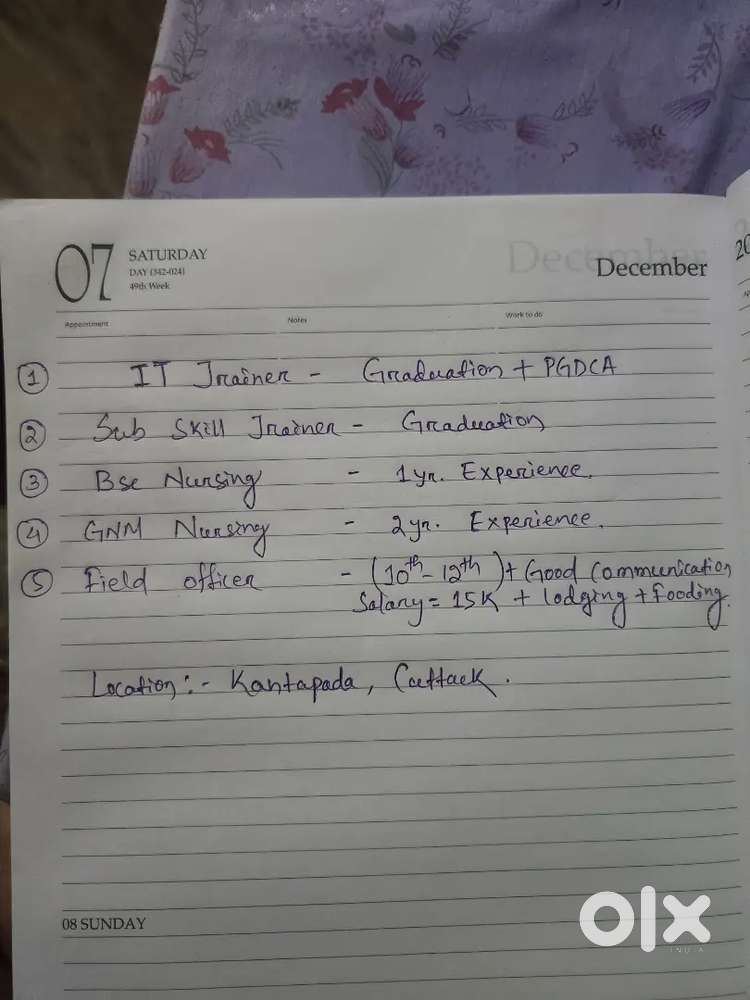 07
SATURDAY
DAY (342-024)
49th Week
December
Appointment Notes Work to do
1 IT Trainer - Graduation + PGDCA
2 Sub Skill Trainer - Graduation
3 Bsc Nursing - 1yr. Experience.
4 GNM Nursing - 2yr. Experience.
5 Field officer - (10th - 12th) + Good Communication
Salary = 15K + lodging + fooding.
Location :- Kantapada, Cuttack.
08 SUNDAY
olx
INDIA